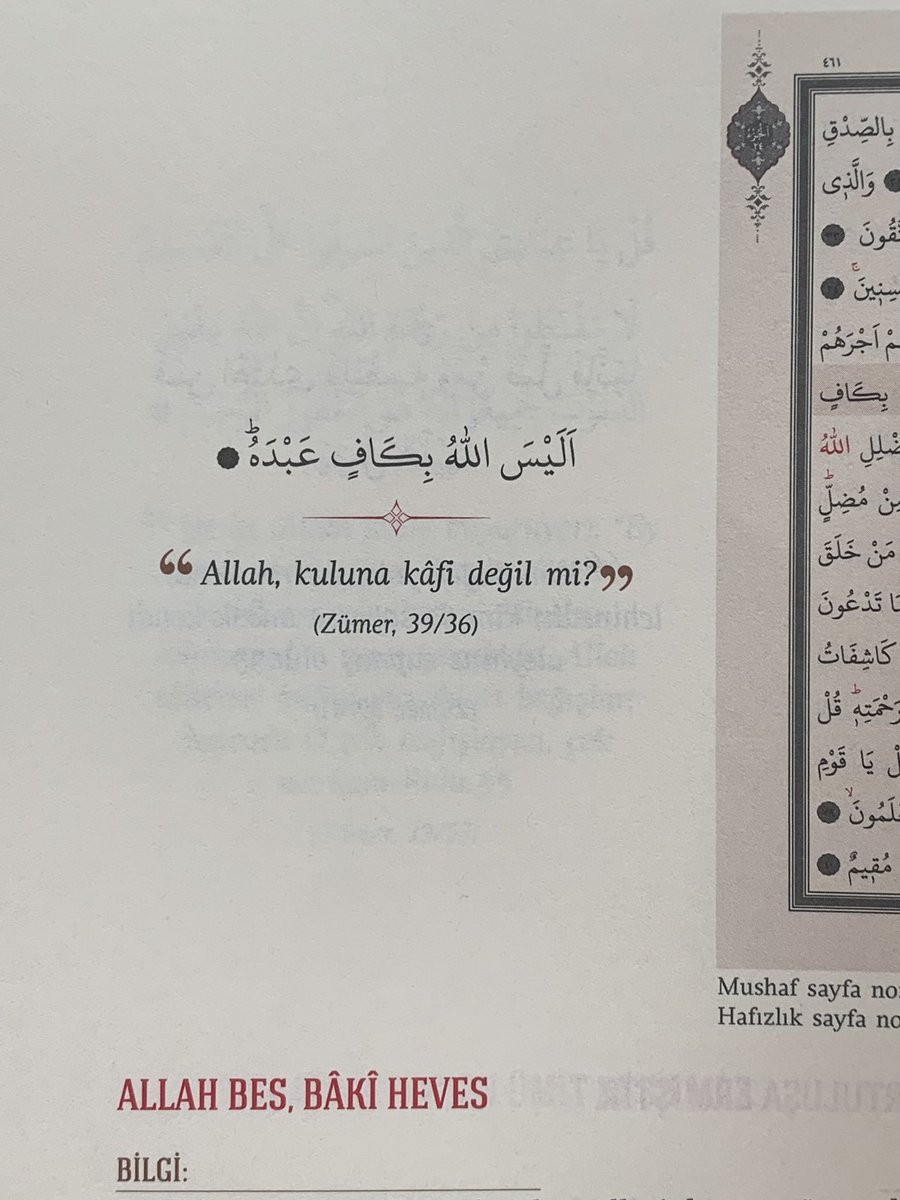 اَلَيْسَ اللّٰهُ بِكَافٍ عَبْدَهُۜ
“Allah, kuluna kâfi değil mi?”
(Zümer, 39/36)
٤٦١
بِالصِّدْقِ
وَالَّذ۪ي
اَجْرَهُمْ
بِكَافٍ
اللّٰهُ
مِنْ مُضِلٍّۜ
مَنْ خَلَقَ
تَدْعُونَ
كَاشِفَاتُ
قُلْ
يَا قَوْمِ
مُق۪يمٌ
Mushaf sayfa
Hafızlık sayfa
ALLAH BES, BÂKÎ HEVES
BİLGİ: